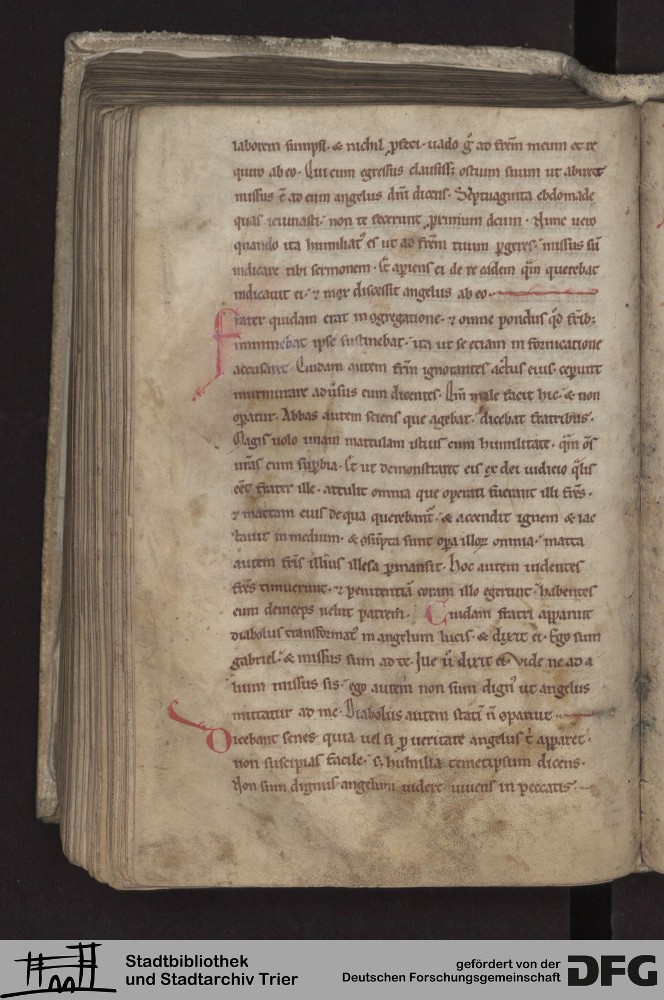 laborem sumpsi · & nichil ꝓfeci · uado g̃ ad frēm meum et re
quiro ab eo · Qui cum egressus clausiss; ostium suum ut abiret
missus ē ad eum angelus dn̄i dicens · Septuaginta ebdomade
quas ieiunasti · non te fecerunt ꝓximum deum · Nunc uero
quando ita humiliatꝰ es ut ad frēm tuum ꝑgeres · missus sū
indicare tibi sermonem · Et aperiens ei de re eadem quā querebat
indicauit ei · & mox discessit angelus ab eo ·
Frater quidam erat in ɔgregatione · & omne pondus qd̄ frīb;
imminebat ipse sustinebat · ita ut se etiam in fornicatione
accusaret · Quidam autem frm̄ ignorantes actus eius · ceperunt
murmurare aduersus eum dicentes · Qm̄ male facit hic · & non
opatur · Abbas autem sciens que agebat · dicebat fratribus ·
Magis uolo unam mattulam istius cum humilitate · quā om̄s
urās cum suꝑbia · Et ut demonstraret eis ex dei iudicio qlis
eēt frater ille · attulit omnia que operati fuerant illi frēs ·
& mattam eius de qua querebant̄ · & accendit ignem & iac
tauit in medium · & ɔsūpta sunt opa illoꝝ omnia · matta
autem frīs illius illesa ꝑmansit · Hoc autem uidentes
frēs timuerunt · & penitentiā coram illo egerunt · habentes
eum deinceps uelut patrem · Cuidam fratri apparuit
diabolus transformatꝰ in angelum lucis · & dixit ei · Ego sum
gabriel · & missus sum ad te · Ille ū dixit ei · Vide ne ad a
lium missus sis · ego autem non sum dignꝰ ut angelus
mittatur ad me · Diabolus autem statī n̄ oparuit ·
Dicebant senes · quia uel si ꝑ ueritate angelus t̄ apparet ·
non suscipias facile · s; humilia temetipsum dicens ·
Non sum dignus angelum uidere uiuens in peccatis ·
Stadtbibliothek
und Stadtarchiv Trier
gefördert von der
Deutschen Forschungsgemeinschaft
DFG